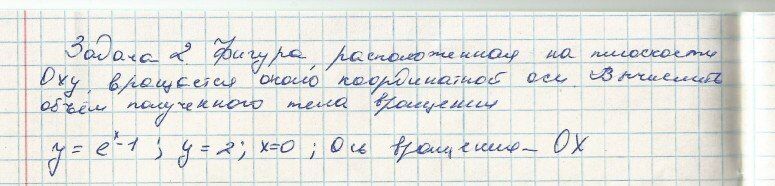 Задача 2. Фигура, расположенная на плоскости
Oxy, вращается около координатной оси. Вычислить
объём полученного тела вращения
y = eˣ-1 ; y = 2; x=0 ; Ось вращения – OX